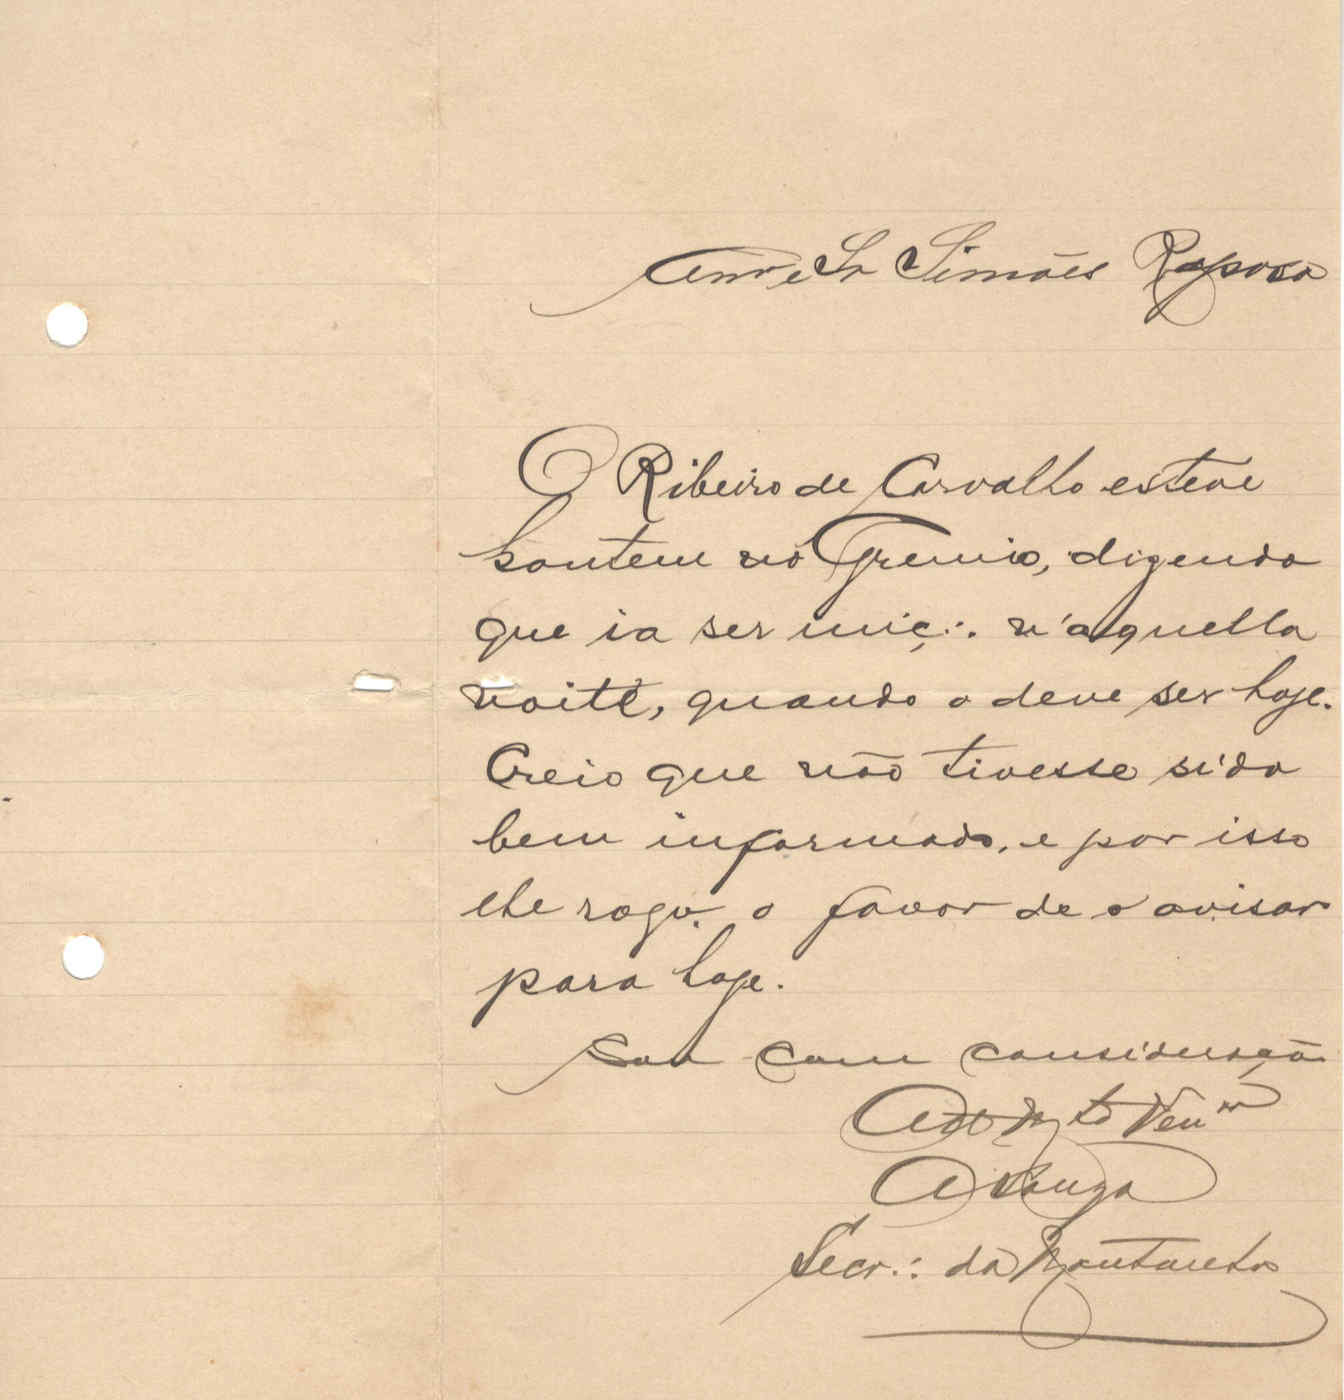 Am.e Sr Simões Raposo
O Ribeiro de Carvalho esteve
hontem no Gremio, dizendo
que ia ser inic∴ n'aquella
noite, quando o deve ser hoje.
Creio que não tivesse sido
bem informado, e por isso
lhe rogo o favor de o avisar
para hoje.
Sou com consideração
Att Mto Venor
A Souza
Secr∴ da Montanha